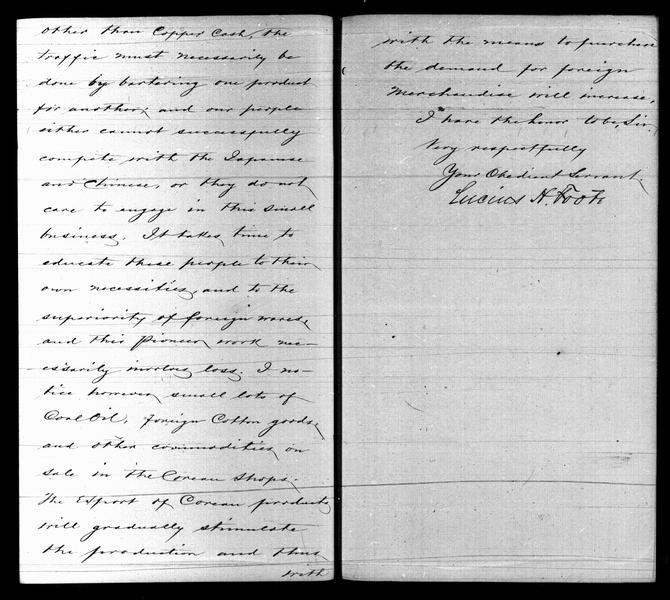 other than Copper Cash, the
traffic must necessarily be
done by bartering one product
for another; and our people
either cannot successfully
compete with the Japanese
and Chinese, or they do not
care to engage in this small
business. It takes time to
educate these people to their
own necessities, and to the
superiority of foreign wares,
and this Pioneer work nec-
essarily involves loss. I no-
tice however, small lots of
Coal Oil, foreign Cotton goods,
and other commodities, on
sale in the Corean Shops.
The Export of Corean products
will gradually stimulate
the production and thus
with
with the means to purchase
the demand for foreign
Merchandise will increase.
I have the honor to be, Sir,
Very respectfully
Your Obedient Servant.
Lucius H. Foote